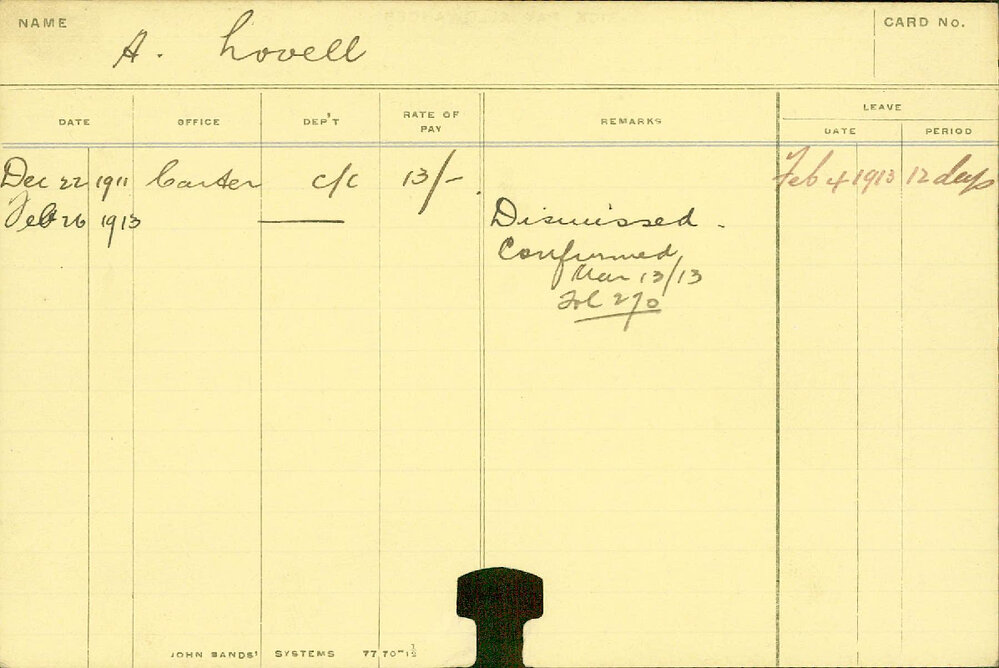 NAME A. Lovell CARD No.
DATE OFFICE DEP'T RATE OF PAY REMARKS LEAVE
DATE PERIOD
Dec 22 1911 Carter c/c 13/- Feb 4 1913 12 days
Feb 26 1913 —— Dismissed.
Confirmed
Mar 13/13
Fol 270
JOHN SANDS' SYSTEMS 77 70-1½